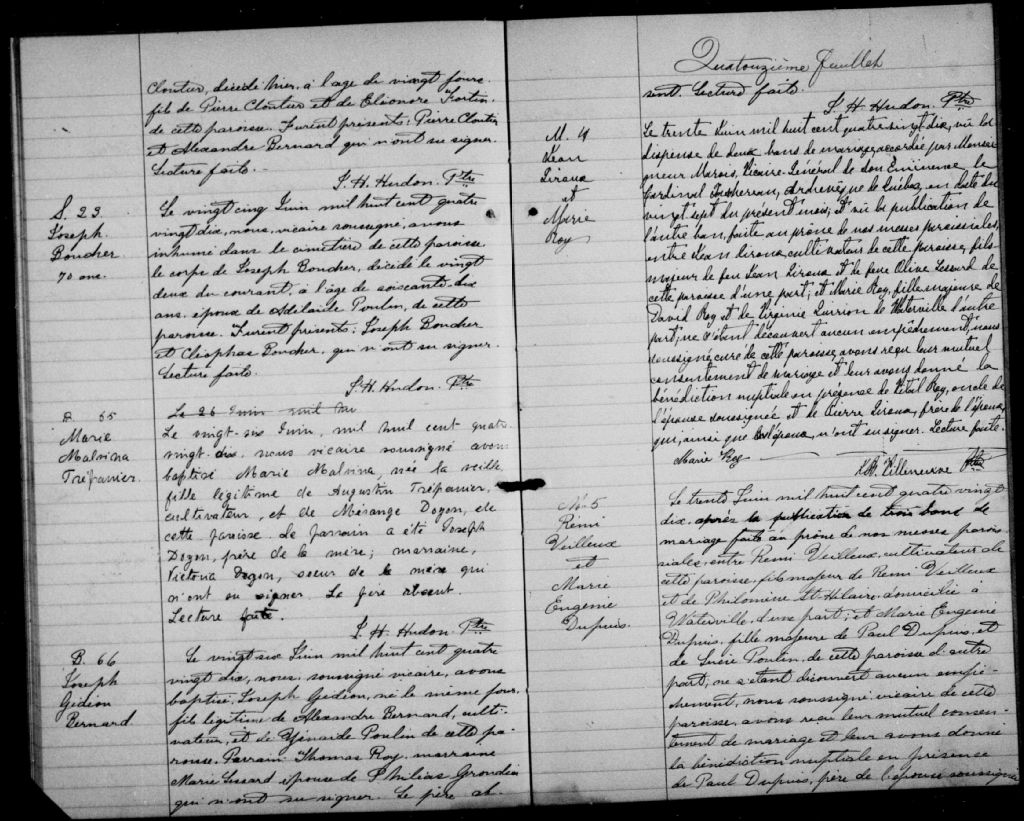 Cloutier, décédé hier, à l'age de vingt jours.
fils de Pierre Cloutier et de Eléonore Fortin
de cette paroisse. Furent présents: Pierre Cloutier
et Alexandre Bernard qui n'ont su signer.
Lecture faite.
J. H. Hudon. Ptre
S. 23
Joseph
Boucher
70 ans.
Le vingt cinq Juin mil huit cent quatre
vingt dix, nous, vicaire soussigné, avons
inhumé dans le cimetière de cette paroisse
le corps de Joseph Boucher, décédé le vingt
deux du courant, à l'âge de soixante-dix
ans, époux de Adelaide Poulin, de cette
paroisse. Furent présents: Joseph Boucher
et Cléophas Boucher, qui n'ont su signer.
Lecture faite.
J. H. Hudon. Ptre
B. 65
Marie
Malvina
Trépanier.
Le 26 Juin mil hu
Le vingt-six Juin, mil huit cent quatre
vingt-dix, nous vicaire soussigné avons
baptisé Marie Malvina, née la veille
fille légitime de Augustin Trépanier,
cultivateur, et de Mésange Doyon, de
cette paroisse. Le parrain a été Joseph
Doyon, père de la mère; marraine,
Victoria Doyon, soeur de la mère qui
n'ont su signer. Le père absent.
Lecture faite.
J. H. Hudon Ptre
B. 66
Joseph
Gédéon
Bernard
Le vingt six Juin mil huit cent quatre
vingt dix, nous, soussigné vicaire, avons
baptisé Joseph Gédéon, né le même jour,
fils légitime de Alexandre Bernard, culti-
vateur, et de Zénaide Poulin de cette pa-
roisse. Parrain Thomas Roy, marraine
Marie Lessard épouse de Philias Grondin
qui n'ont su signer. Le père ab-
Quatorzième feuillet
sent. Lecture faite.
J. H. Hudon. Ptre
M. 4
Jean
Giroux
et
Marie
Roy
Le trente Juin mil huit cent quatre vingt dix, vu la
dispense de deux bans de mariage accordée par Monsei
gneur Marois, Vicaire-Général de Son Eminence le
Cardinal Taschereau, Archevêque de Québec, en date du
vingt sept du présent mois; et vu la publication de
l'autre ban, faite au prône de nos messes paroissiales,
entre Jean Giroux, cultivateur de cette paroisse, fils
majeur de feu Jean Giroux et de feue Olive Lessard de
cette paroisse d'une part; et Marie Roy, fille majeure de
David Roy et de Virginie de Waterville d'autre
part; ne s'étant découvert aucun empêchement, nous
soussigné curé de cette paroisse, avons reçu leur mutuel
consentement de mariage et leur avons donné la
bénédiction nuptiale en présence de Vital Roy, oncle de
l'épouse soussignée et de Pierre Giroux, frère de l'époux,
qui, ainsi que l'époux, n'ont su signer. Lecture faite.
Marie Roy
Villeneuve Ptre
M. 5
Rémi
Veilleux
et
Marie
Eugénie
Dupuis.
Le trente Juin mil huit cent quatre vingt
dix, après la publication de trois bans de
mariage faite au prône de nos messes parois
siales, entre Rémi Veilleux, cultivateur de
cette paroisse, fils majeur de Rémi Veilleux
et de Philomène St Hilaire, domicilié à
Waterville, d'une part; et Marie Eugénie
Dupuis, fille majeure de Paul Dupuis, et
de Lucie Poulin, de cette paroisse d'autre
part; ne s'étant découvert aucun empê-
chement, nous soussigné vicaire de cette
paroisse, avons reçu leur mutuel consen-
tement de mariage et leur avons donné
la bénédiction nuptiale en présence
de Paul Dupuis, père de l'épouse soussigné